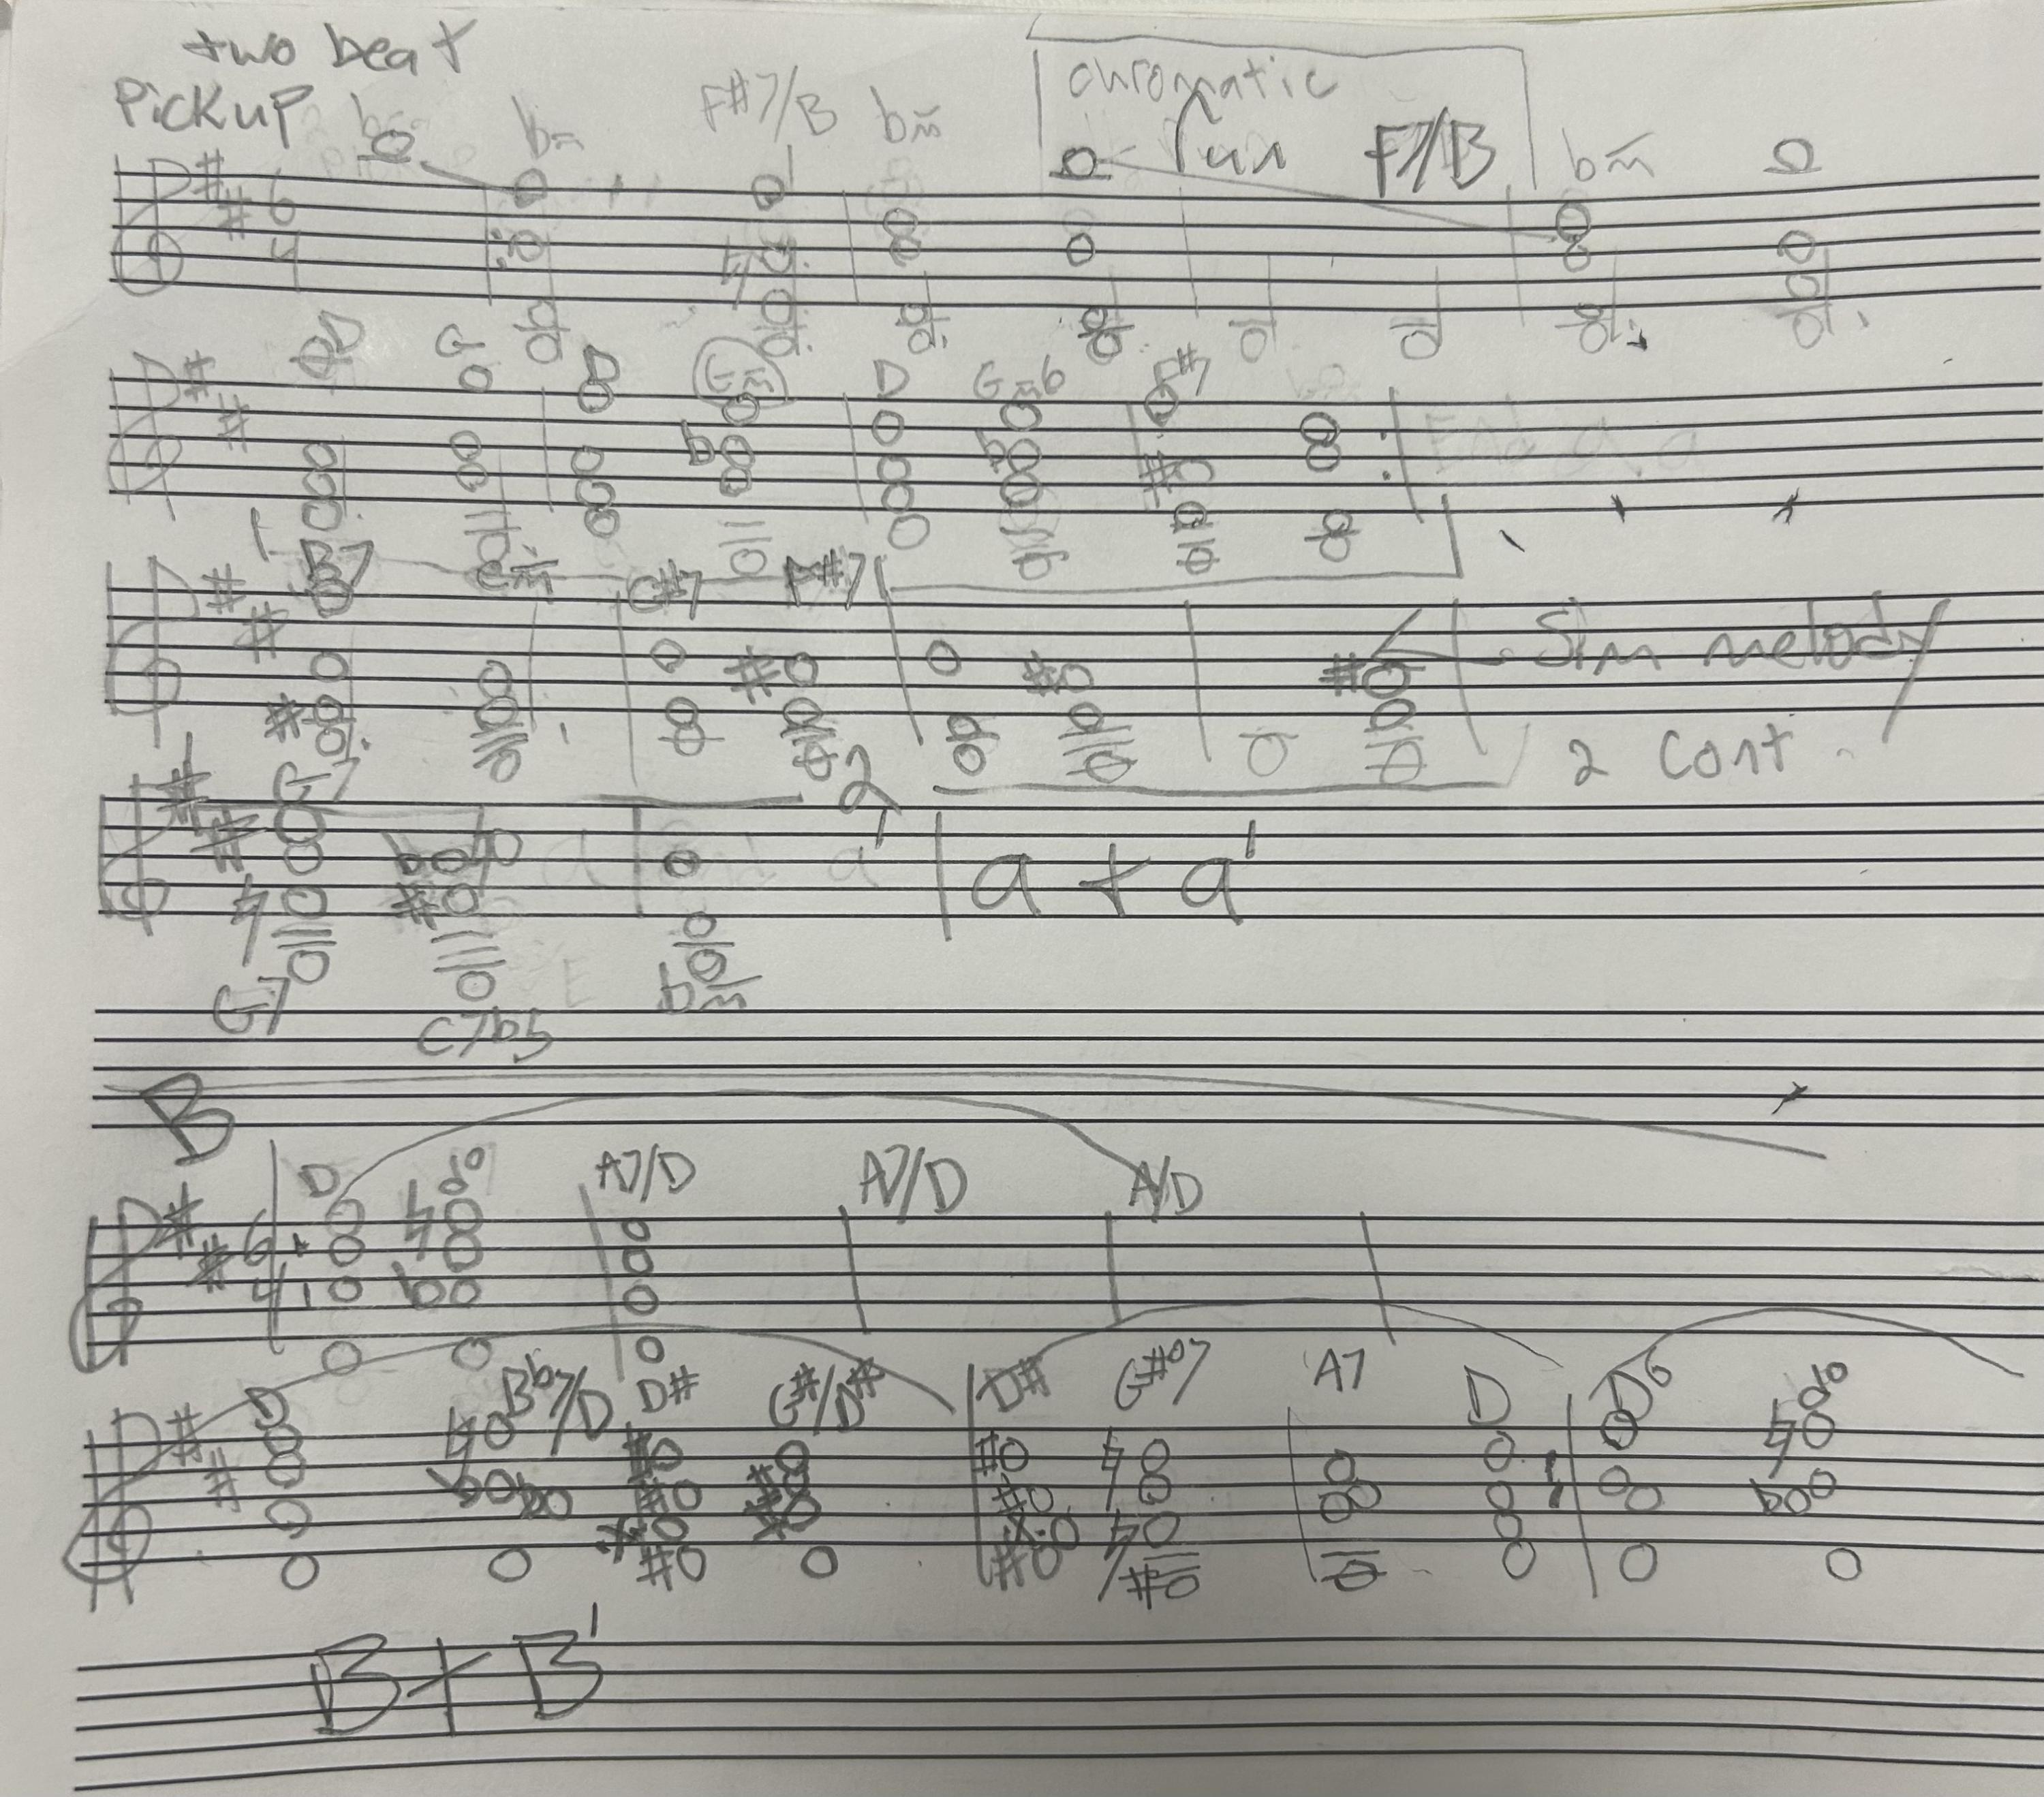 two beat
Pickup
bm F#7/B bm
chromatic
run F7/B bm
6
4
D G D Gm D Gm6 F#7
1
B7 em C#7 F#7
Sim melody
2 cont.
G7
2
a + a'
G7 C7b5 bm
B
D d° A7/D A7/D A/D
6
4
D Bb7/D D# G#/D# D# G#°7 A7 D D6 d°
B + B'